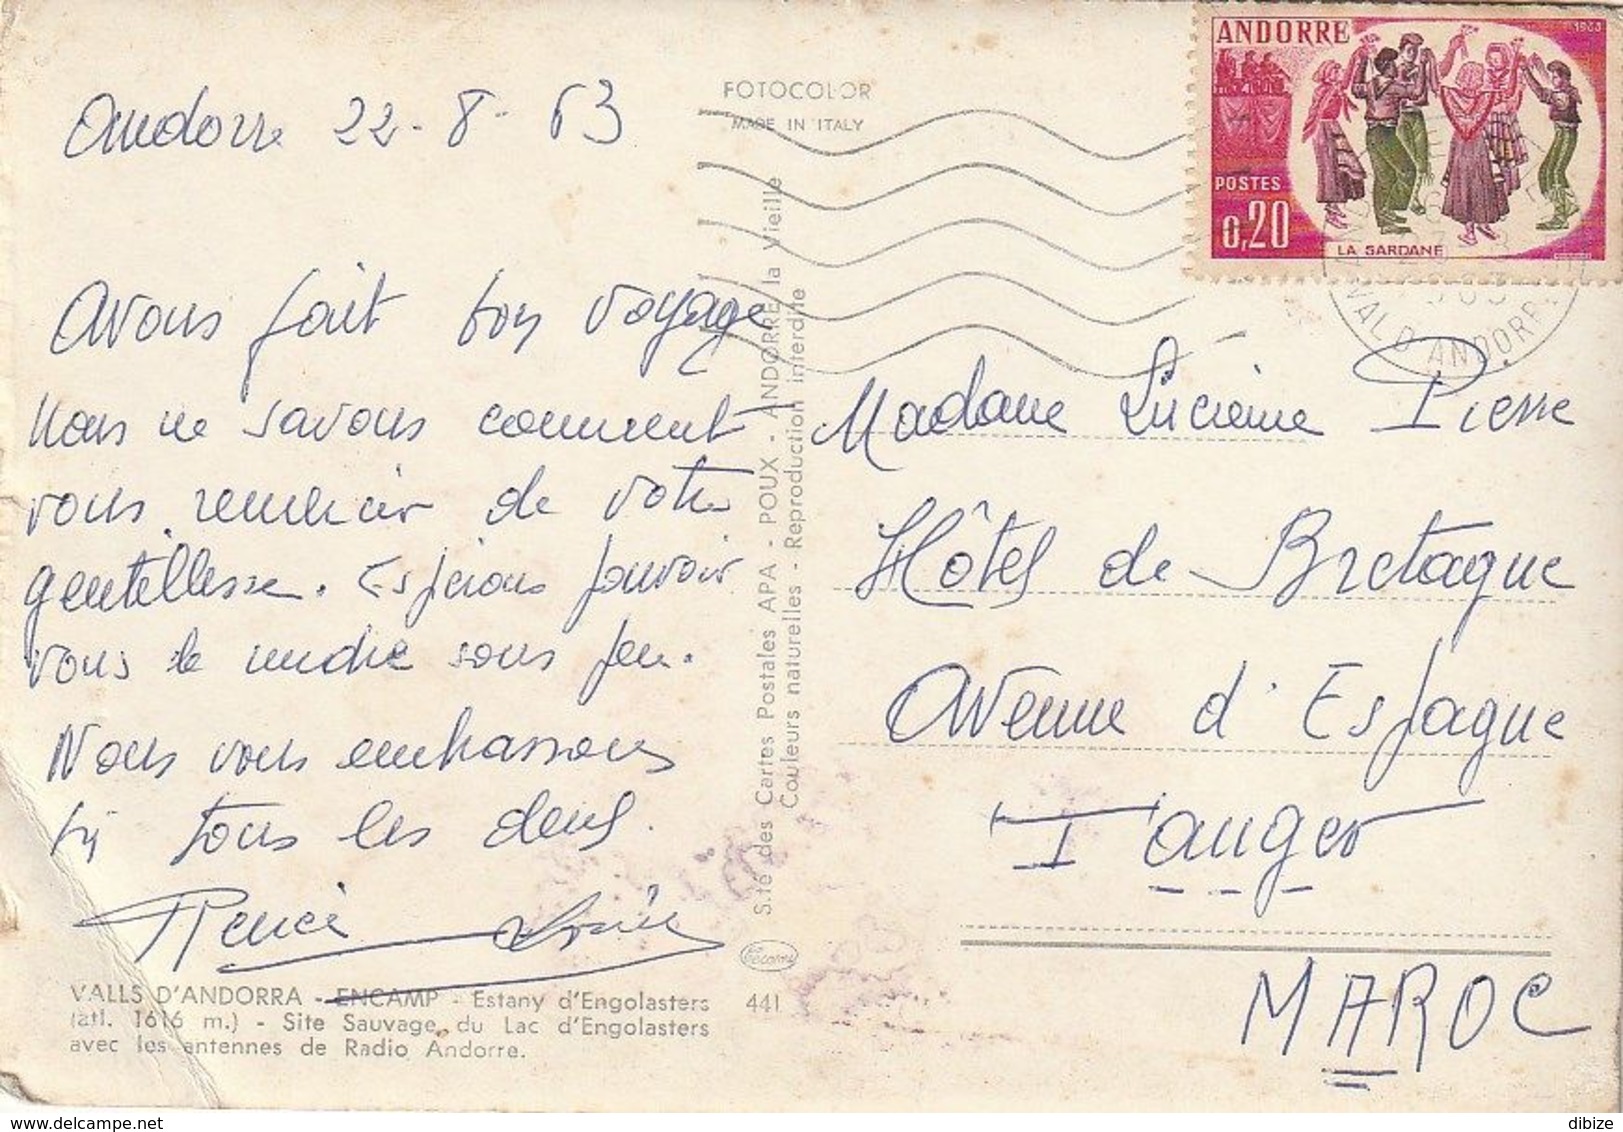 Andorre 22-8-63
Avons fait bon voyage
Nous ne savons comment
vous remercier de votre
gentillesse. Espérons pouvoir
vous le rendre sous peu.
Nous vous embrassons
tous les deux.
Renée
VALLS D'ANDORRA - ENCAMP - Estany d'Engolasters
(atl. 1616 m.) - Site Sauvage du Lac d'Engolasters
avec les antennes de Radio Andorre.
441
FOTOCOLOR
MADE IN ITALY
S.té des Cartes Postales APA - POUX - ANDORRE la Vieille
Couleurs naturelles - Reproduction interdite
ANDORRE
1963
POSTES
0,20
LA SARDANE
VAL D'ANDORRE
Madame Lucienne Pierre
Hôtel de Bretagne
Avenue d'Espagne
Tanger
MAROC
dibize